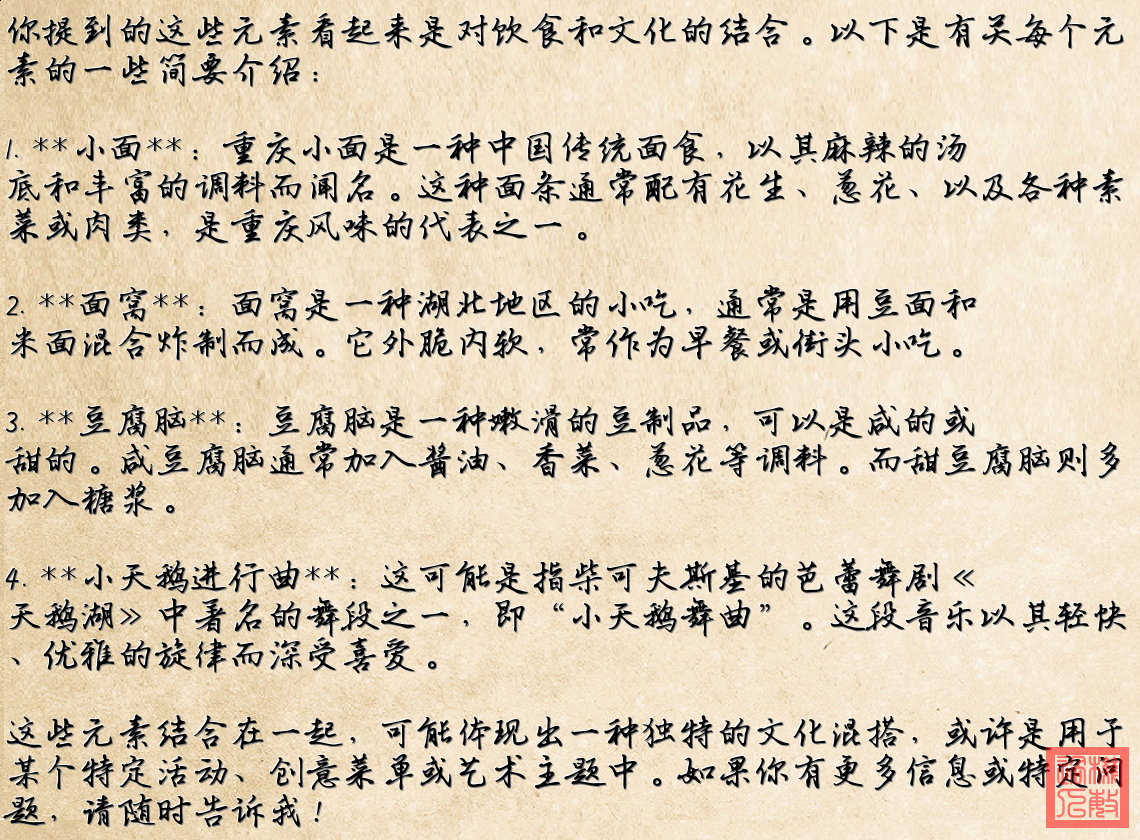 你提到的这些元素看起来是对饮食和文化的结合。以下是有关每个元
素的一些简要介绍：
1. **小面**：重庆小面是一种中国传统面食，以其麻辣的汤
底和丰富的调料而闻名。这种面条通常配有花生、葱花、以及各种素
菜或肉类，是重庆风味的代表之一。
2. **面窝**：面窝是一种湖北地区的小吃，通常是用豆面和
米面混合炸制而成。它外脆内软，常作为早餐或街头小吃。
3. **豆腐脑**：豆腐脑是一种嫩滑的豆制品，可以是咸的或
甜的。咸豆腐脑通常加入酱油、香菜、葱花等调料。而甜豆腐脑则多
加入糖浆。
4. **小天鹅进行曲**：这可能是指柴可夫斯基的芭蕾舞剧《
天鹅湖》中著名的舞段之一，即“小天鹅舞曲”。这段音乐以其轻快
、优雅的旋律而深受喜爱。
这些元素结合在一起，可能体现出一种独特的文化混搭，或许是用于
某个特定活动、创意菜单或艺术主题中。如果你有更多信息或特定问
题，请随时告诉我！